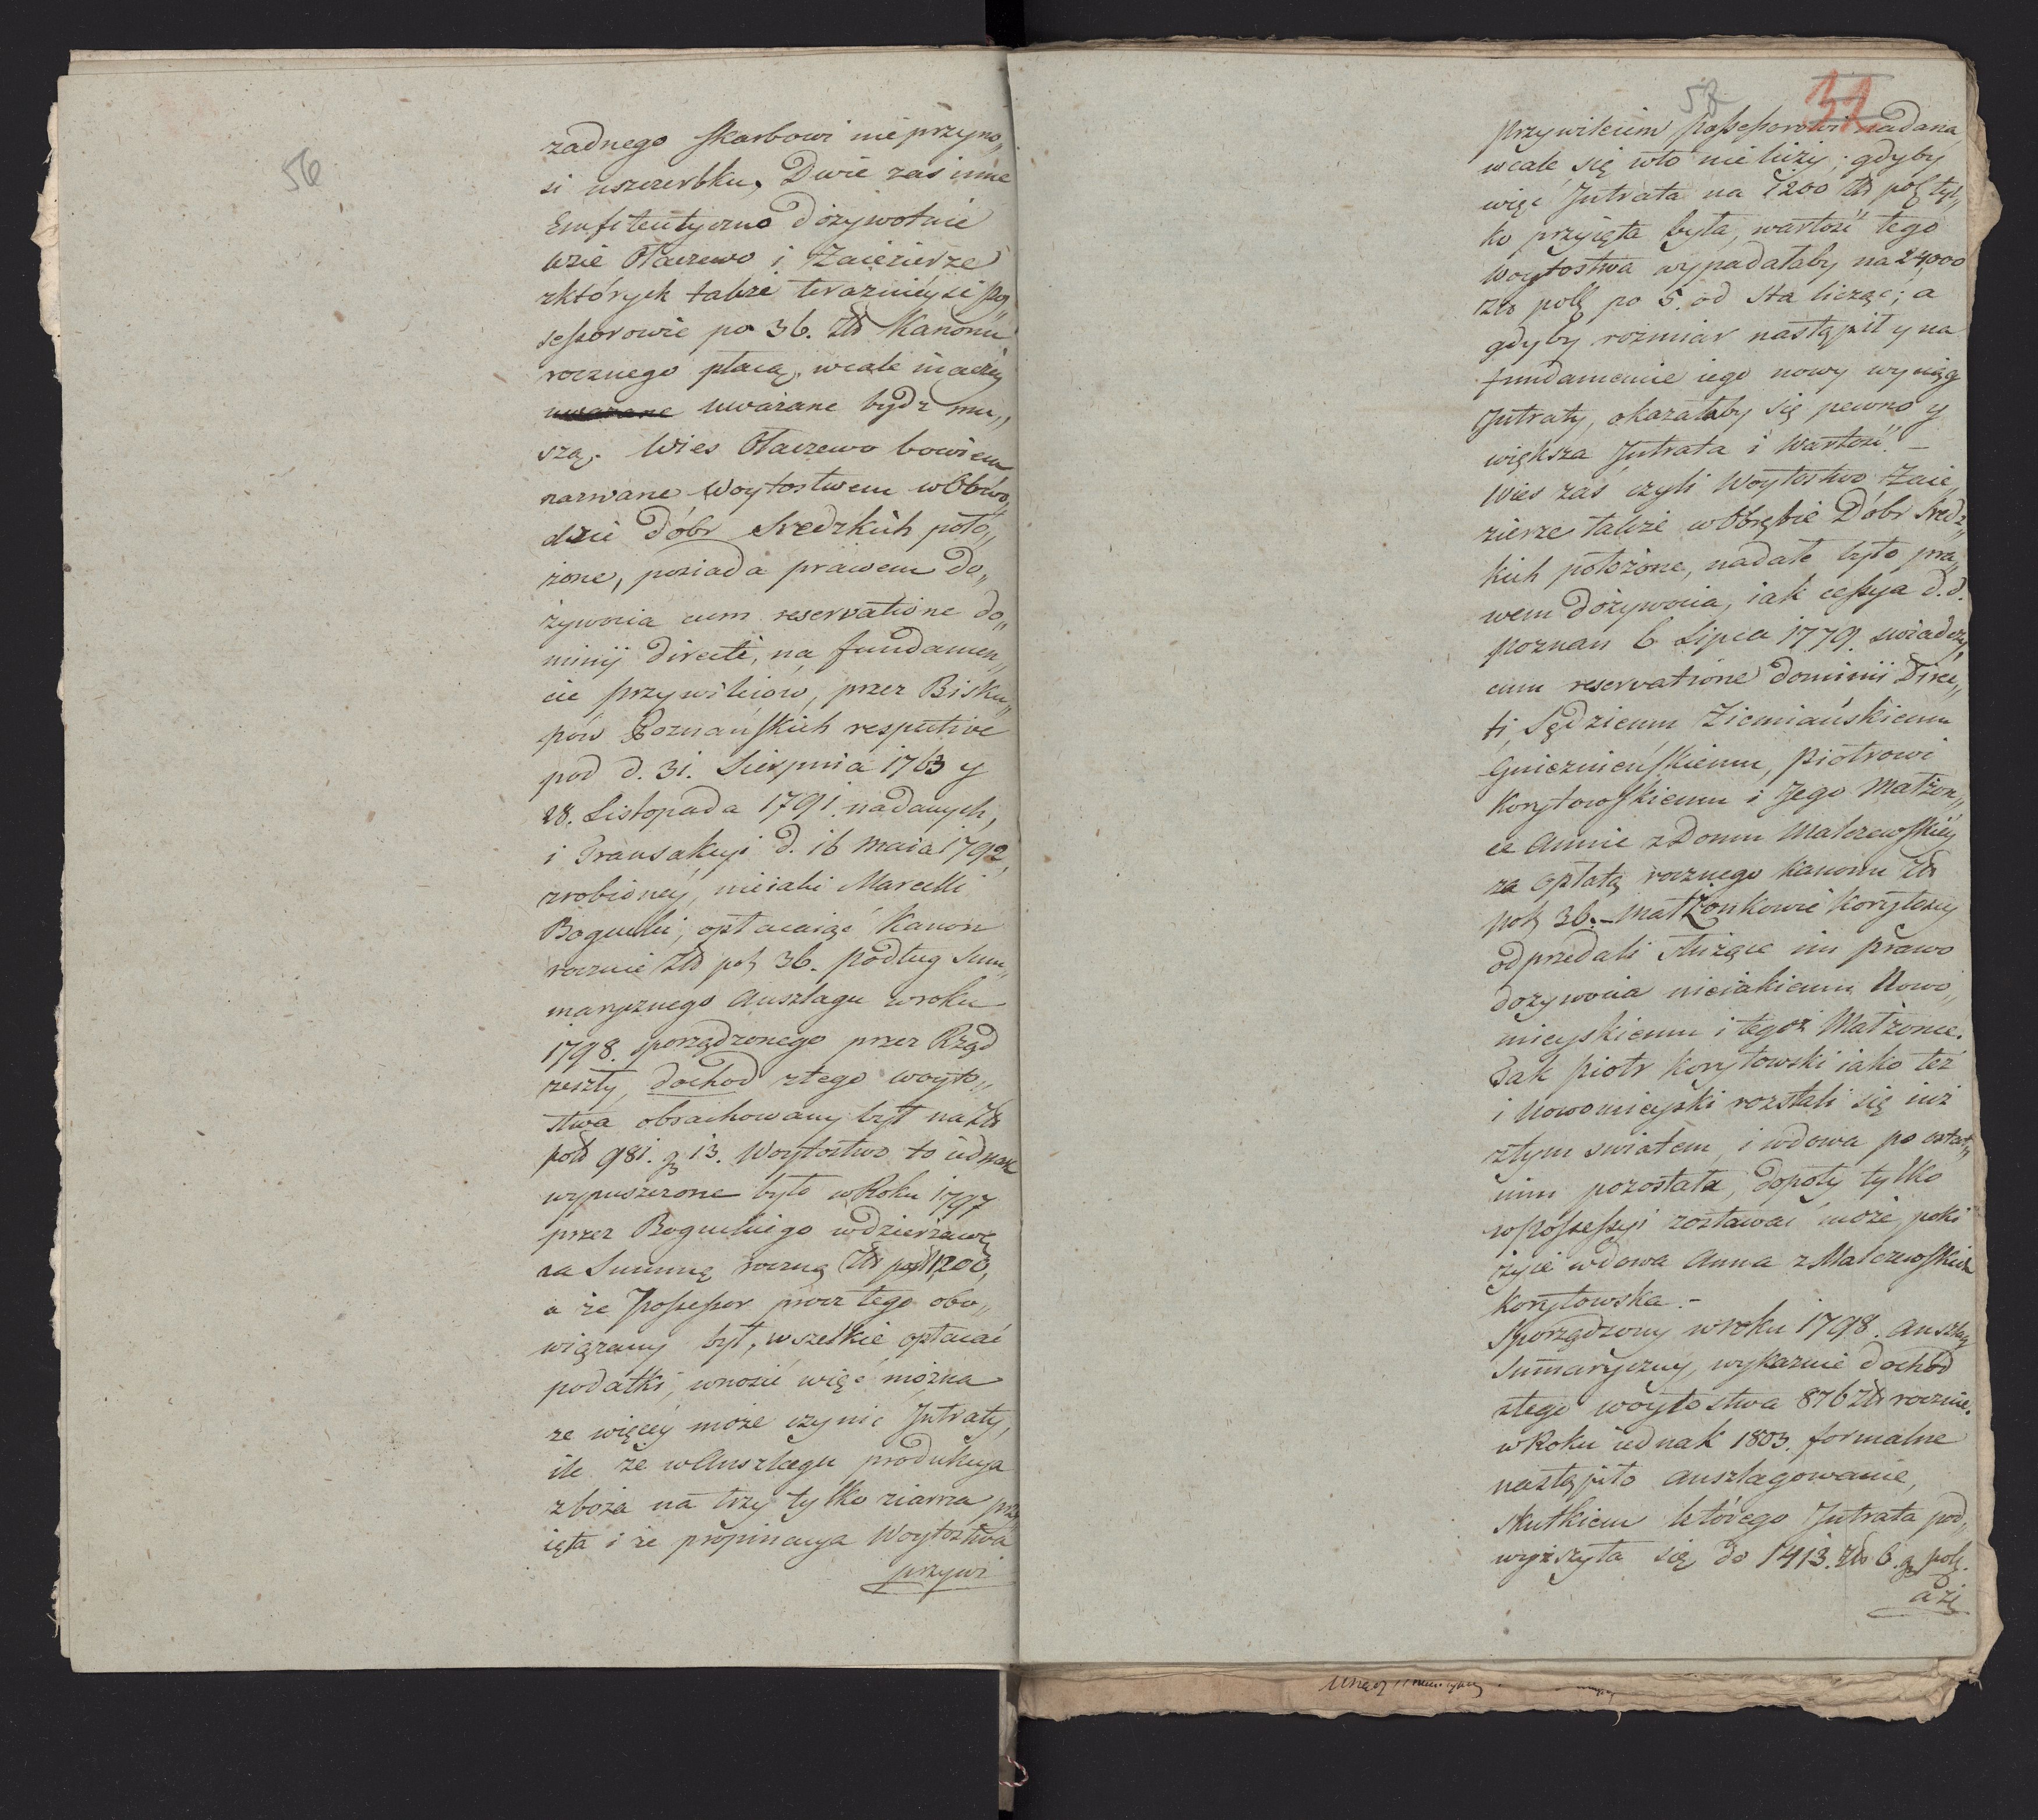 56
żadnego skarbowi nie przyno„
si uszczerbku, Dwie zas inne
Emfiteutyczno dożywotnie
wsie Otaczewo i Zaiezierze
z których także teraznieysi Po„
sessorowie po 36. Zł Kanonu
rocznego płacą, wcale inaczey
uważane uważane bydz mu„
szą. Wies Otaczewo bowiem
nazwane Woytostwem w Obwo„
dzie Dóbr Sredzkich poło„
żone, posiada prawem do„
żywocia cum reservatione do„
minij directi, na fundamen„
cie przywileiów, przez Bisku„
pów Poznańskich respective
pod d. 31. Sierpnia 1763 y
28. Listopada 1791. nadanych,
i Transakcyi d. 16 Maia 1792
zrobioney, nieiaki Marcelli
Bogucki, opłacaiąc Kanon
rocznie Zł pol 36. podług Sum„
marycznego Anszlagu w roku
1798. sporządzonego przez Rząd
zeszły, dochod z tego woyto„
stwa obrachowany był na Zł
pol 981. g 13. Woytostwo to iednak
wypuszczone było w Roku 1797
przez Boguckiego w dzierzawę
za Summę roczną Zł pol 1200,
a że Possessor procz tego obo„
wiązany był, wszelkie opłacać
podatki, wnosić więc można
ze więcey może czynic Jntraty,
ile że w Anszlagu produkcya
zboża na trzy tylko ziarna przy
ięta i że propinacya Woytostwa
przywi
57
32
przywileium possessorowi nadana
wcale się w to nie liczy; gdyby
więc Jntrata na 1200 Zł pol tyl„
ko przyięta była, wartość tego
Woytostwa wypadałaby na 24000
Zł pol po 5. od Sta licząc; a
gdyby rozmiar nastąpił y na
fundamencie iego nowy wyciąg
Jntraty, okazałaby się pewno y
większa Jntrata i Wartość. –
Wies zaś czyli Woytostwo Zaie„
zierze także w Obrębie Dóbr Sredz„
kich położone, nadałe było pra„
wem dożywocia, iak cessya d. d.
Poznan 6 Lipca 1779. swiadczy,
cum reservatione dominii Direc„
ti, Sędziemu Ziemiańskiemu
Gnieznieńskiemu, Piotrowi
Korytowskiemu i Jego Małżon„
ce Annie z Domu Malczewskiey
za opłatą rocznego kanonu Zł
pol 36. – Małżonkowie Korytoscy
odprzedali służące im prawo
dozywocia nieiakiemu Nowo„
mieyskiemu i tegoż Małżonce.
Tak Piotr Korytowski iako też
i Nowomieyski rozstali się iuż
z tym swiatem, i wdowa po ostat„
nim pozostała, dopoty tylko
w possessyi zostawać może, poki
żyie wdowa Anna z Malczewskich
Korytowska. –
Sporządzony w roku 1798. Anszlag
Summaryczny, wykazuie dochod
z tego woytostwa 876 Zł rocznie.
w Roku iednak 1803. formalne
nastąpiło anszlagowanie,
skutkiem którego Jntrata pod„
wyższyła się do 1413. Zł 6. g pol.
a zę